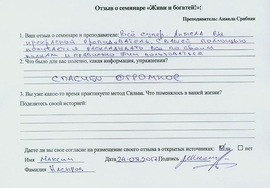 Отзыв о семинаре «Живи и богатей!»:
Преподаватель: Анжела Срабиан
1. Ваш отзыв о семинаре и преподавателе: Всё супер. Анжела Вы
прекрасный преподаватель. С Вашей помощью
раскладывать все по своим
полкам и правильно этим пользоваться
2. Что было для вас полезно, какая информация, упражнения?
СПАСИБО ОГРОМНОЕ
3. Вы уже какое-то время практикуете метод Сильва. Что поменялось в вашей жизни?
Поделитесь своей историей:
Даете ли вы свое согласие на размещение своего отзыва в открытых источниках? Да нет
Имя Максим Дата 24.09.2017 Подпись
Фамилия